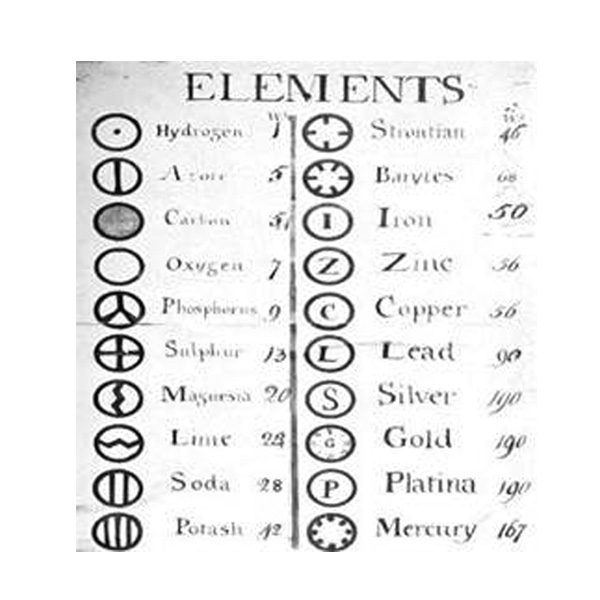 ELEMENTS
Hydrogen 1
Azote 5
Carbon 5
Oxygen 7
Phosphorus 9
Sulphur 13
Magnesia 20
Lime
Soda 28
Potash 42
Strontian 46
Barytes 68
I Iron 50
Z Zinc 56
C Copper 56
L Lead 90
S Silver 190
G Gold 190
P Platina 190
Mercury 167